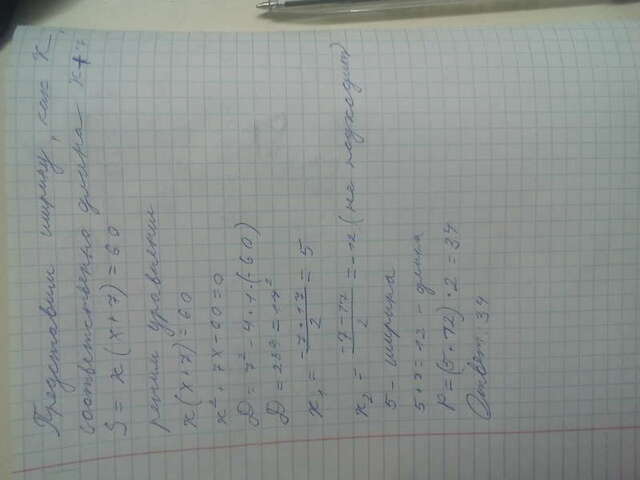 Представим ширину, как x,
соответственно длина x+7
S = x(x+7) = 60
решим уравнение
x(x+7) = 60
x² + 7x - 60 = 0
D = 7² - 4·1·(-60)
D = 289 = 17²
x₁ = (-7+17)/2 = 5
x₂ = (-7-17)/2 = -12 (не подходит)
5 - ширина
5+7=12 - длина
P = (5+12)·2 = 34
Ответ: 34